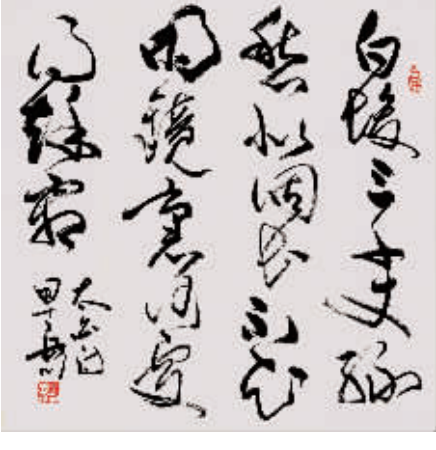 白髮三千丈緣
愁似個長不知
明鏡裏何處
得秋霜
太白詩